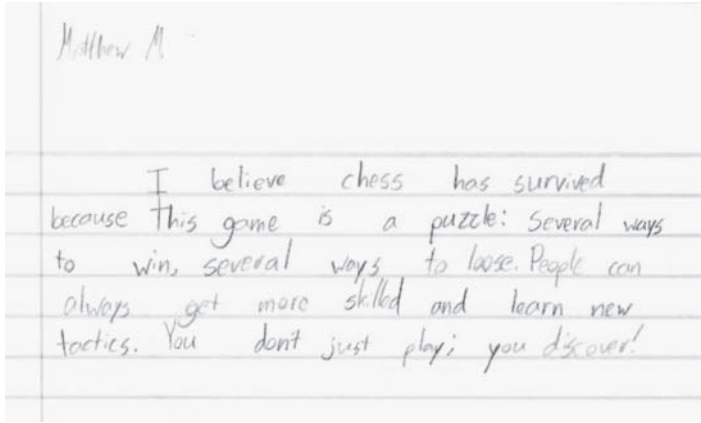 Matthew M
I believe chess has survived
because This game is a puzzle: Several ways
to win, several ways to loose. People can
always get more skilled and learn new
tactics. You don't just play; you discover!